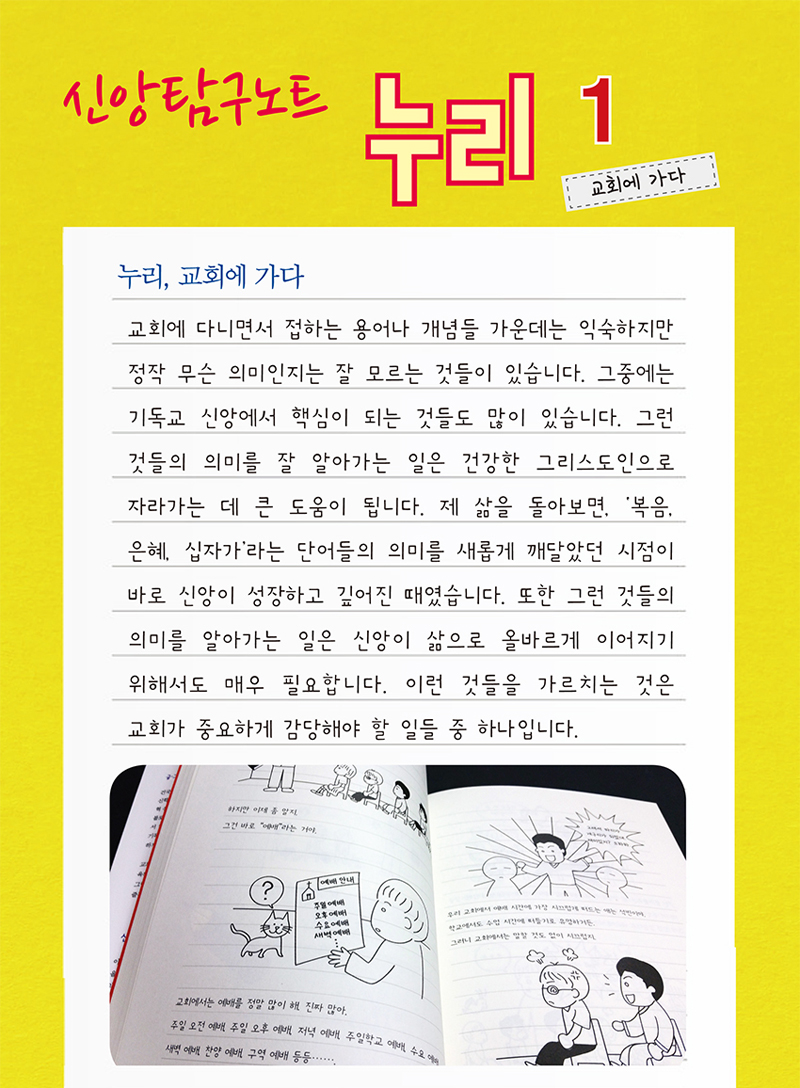 신앙탐구노트 누리 1
교회에 가다
누리, 교회에 가다
교회에 다니면서 접하는 용어나 개념들 가운데는 익숙하지만
정작 무슨 의미인지는 잘 모르는 것들이 있습니다. 그중에는
기독교 신앙에서 핵심이 되는 것들도 많이 있습니다. 그런
것들의 의미를 잘 알아가는 일은 건강한 그리스도인으로
자라가는 데 큰 도움이 됩니다. 제 삶을 돌아보면, '복음,
은혜, 십자가'라는 단어들의 의미를 새롭게 깨달았던 시점이
바로 신앙이 성장하고 깊어진 때였습니다. 또한 그런 것들의
의미를 알아가는 일은 신앙이 삶으로 올바르게 이어지기
위해서도 매우 필요합니다. 이런 것들을 가르치는 것은
교회가 중요하게 감당해야 할 일들 중 하나입니다.
하지만 이제 좀 알지.
그건 바로 "예배"라는 거야.
?
예배 안내
주일예배
오후예배
수요예배
새벽예배
교회에서는 예배를 정말 많이 해. 진짜 많아.
주일 오전 예배, 주일 오후 예배, 저녁 예배, 주일학교 예배, 수요 예배
새벽 예배, 찬양 예배, 구역 예배 등등……
우리 교회에서 예배 시간에 가장 시끄럽게 떠드는 애는
학교에서도 수업 시간에 떠들기로 유명하거든.
그러니 교회에서는 말할 것도 없이 시끄럽지.